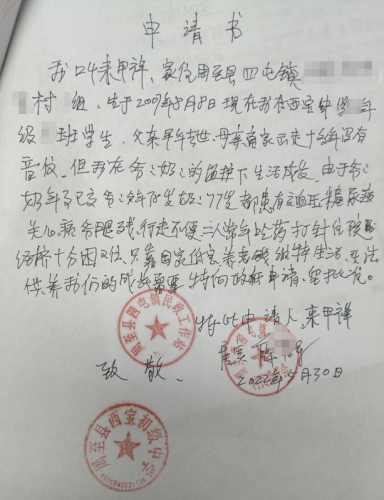 申请书
我叫来甲祥，家住周至县四屯镇
村 组，生于2009年8月8日现在就西宝中学 年
级 班学生，父亲早年去世，母亲离家出走十多年没有
音信，但我在爷爷奶奶的 下生活成长，由于爷爷
奶年已高爷爷 奶奶77岁都患有高血压糖尿病
关心病爷腿残，行走不便二人常年吃药打针住院
经济十分困又位，只靠国家低宝养老 维持生活，无法
供养我们的成长需要特向政府申请，望批准。
特此申请人来甲祥
致敬、
2022年5月30日
周至县四屯镇民政工作站
周至县西宝初级中